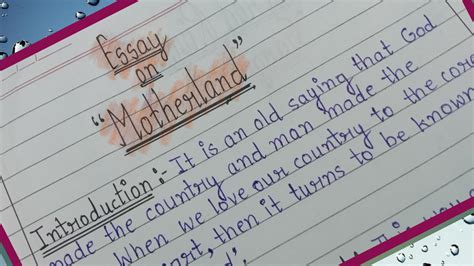 Essay
on
"Motherland"
Introduction:- It is an old saying that God
made the country and man made the
When we love our country to the core
then it turns to be known